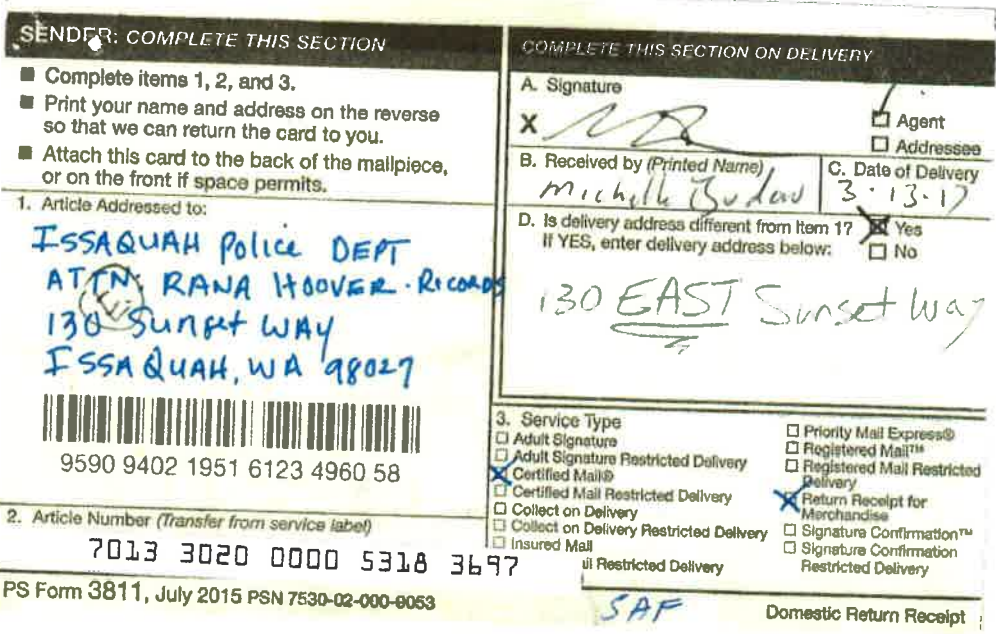 SENDER: COMPLETE THIS SECTION
■ Complete items 1, 2, and 3.
■ Print your name and address on the reverse
so that we can return the card to you.
■ Attach this card to the back of the mailpiece,
or on the front if space permits.
1. Article Addressed to:
ISSAQUAH Police DEPT
ATTN: RANA HOOVER - RECORDS
130 Sunset WAY
ISSAQUAH, WA 98027
9590 9402 1951 6123 4960 58
2. Article Number (Transfer from service label)
7013 3020 0000 5318 3697
PS Form 3811, July 2015 PSN 7530-02-000-9053
COMPLETE THIS SECTION ON DELIVERY
A. Signature
X
☐ Agent
☐ Addressee
B. Received by (Printed Name)
Michelle
C. Date of Delivery
3-13-17
D. Is delivery address different from item 1? ☒ Yes
If YES, enter delivery address below: ☐ No
130 EAST Sunset Way
3. Service Type
☐ Adult Signature
☐ Adult Signature Restricted Delivery
☒ Certified Mail®
☐ Certified Mail Restricted Delivery
☐ Collect on Delivery
☐ Collect on Delivery Restricted Delivery
☐ Insured Mail
il Restricted Delivery
☐ Priority Mail Express®
☐ Registered Mail™
☐ Registered Mail Restricted
Delivery
☒ Return Receipt for
Merchandise
☐ Signature Confirmation™
☐ Signature Confirmation
Restricted Delivery
SAF
Domestic Return Receipt